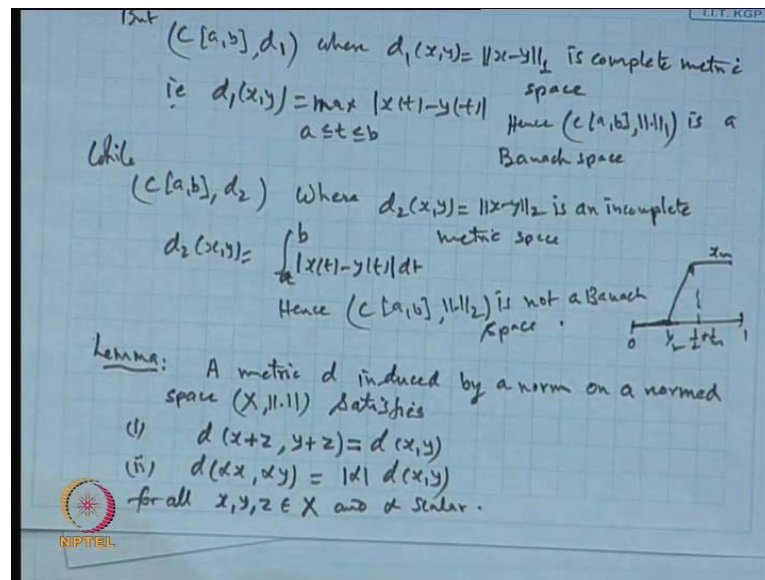 I.I.T. KGP
But
(C[a,b], d₁) where d₁(x,y) = ||x-y||₁ is complete metric
space
ie d₁(x,y) = max |x(t)-y(t)|
a ≤ t ≤ b
Hence (C[a,b], ||.||₁) is a
Banach space
While
(C[a,b], d₂) Where d₂(x,y) = ||x-y||₂ is an incomplete
metric space
d₂(x,y) = ∫ₐᵇ |x(t)-y(t)| dt
Hence (C[a,b], ||.||₂) is not a Banach
space.
xₘ
0 ½ 1
Lemma: A metric d induced by a norm on a normed
space (X, ||.||) satisfies
(i) d(x+z, y+z) = d(x,y)
(ii) d(αx, αy) = |α| d(x,y)
for all x,y,z ∈ X and α scalar.
NPTEL